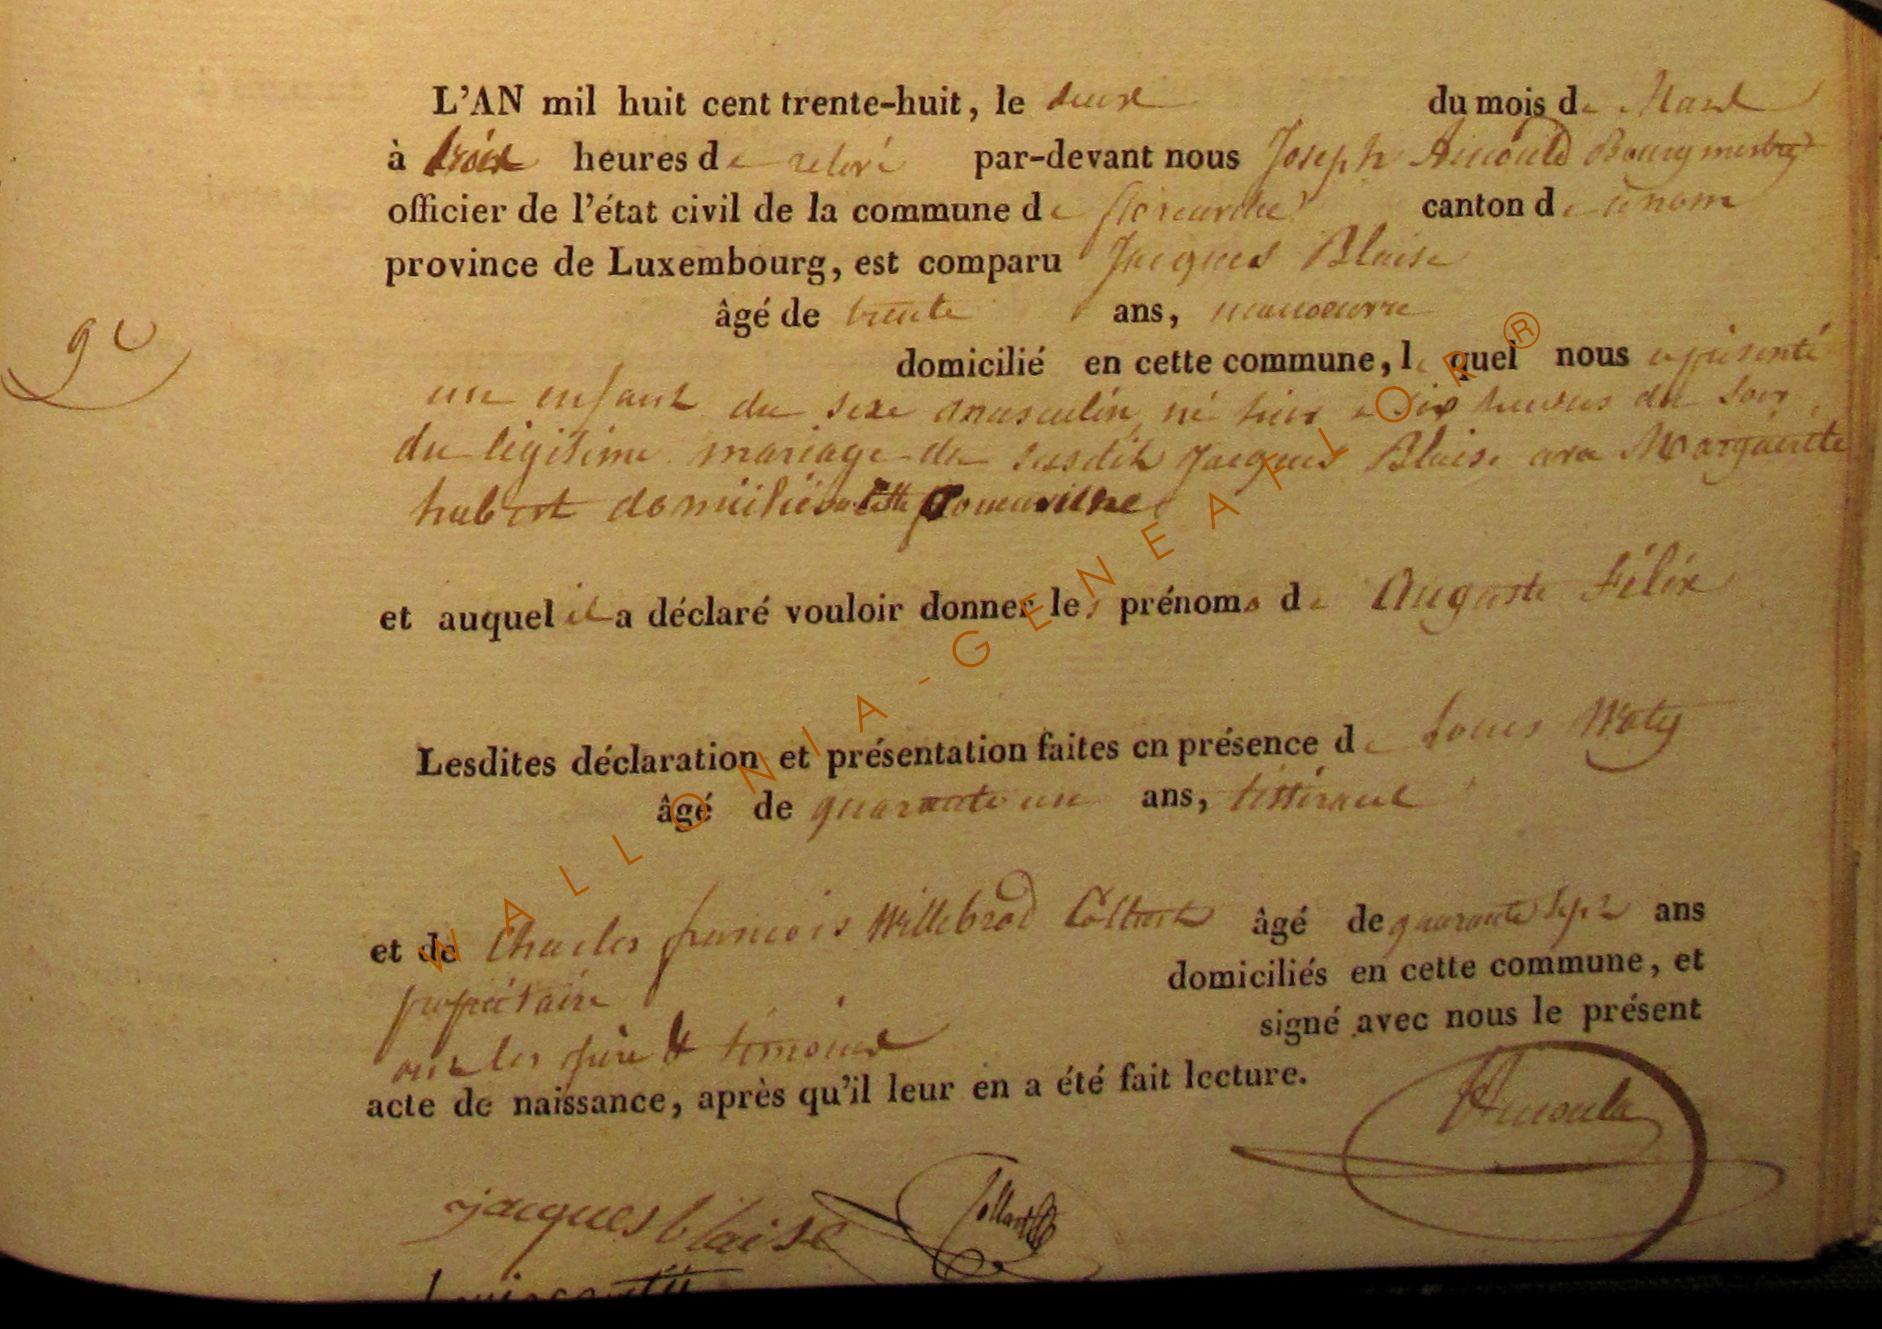 L'AN mil huit cent trente-huit, le deux du mois de Mars
à trois heures de relevé par-devant nous Joseph Arnould Bourgmestre
officier de l'état civil de la commune de florenville canton de
province de Luxembourg, est comparu Jacques Blaise
âgé de trente ans, manoeuvre
domicilié en cette commune, le quel nous a présenté
un enfant du sexe masculin, né hier a six heures du soir,
du légitime mariage du susdit Jacques Blaise avec Marguerite
hubert domiciliés florenville
et auquel il a déclaré vouloir donner les prénoms de Auguste Félix
Lesdites déclaration et présentation faites en présence de Louis Waty
âgé de quarante un ans, tisserand
et de Charles françois Willebrod Collart âgé de quarante sept ans
propriétaire domiciliés en cette commune, et
ont les père et témoins signé avec nous le présent
acte de naissance, après qu'il leur en a été fait lecture.
Arnould
jacques blaise Collart
WALLONIA-GENEAFLOR®